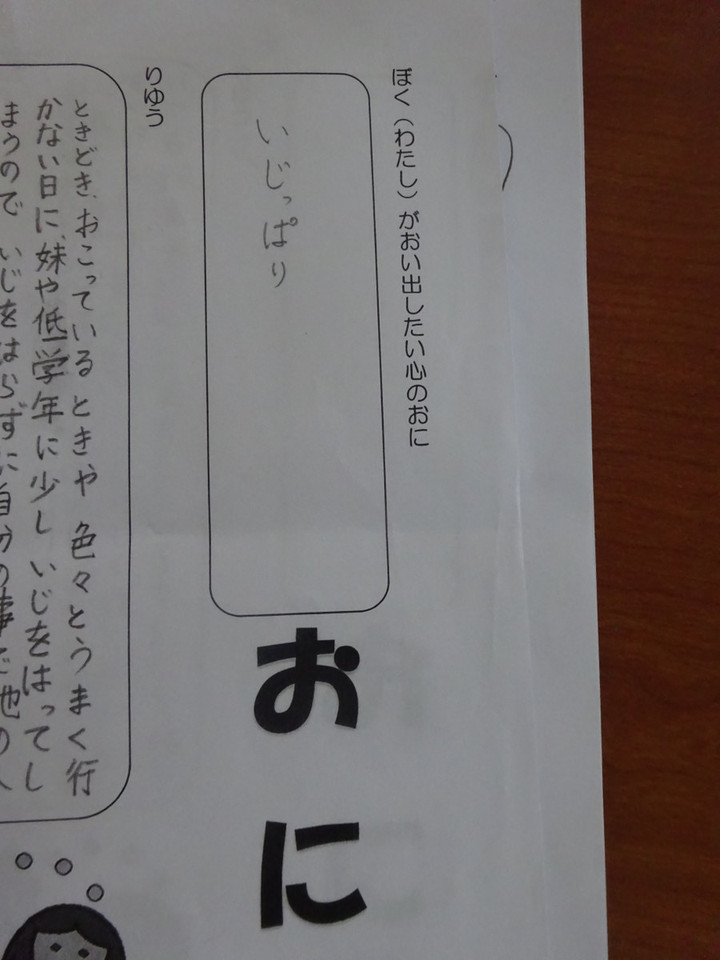 ぼく（わたし）がおい出したい心のおに
いじっぱり
おに
りゆう
ときどき、おこっているときや色々とうまく行
かない日に、妹や低学年に少しいじをはってし
まうので いじをはらずに自分の事で他の人